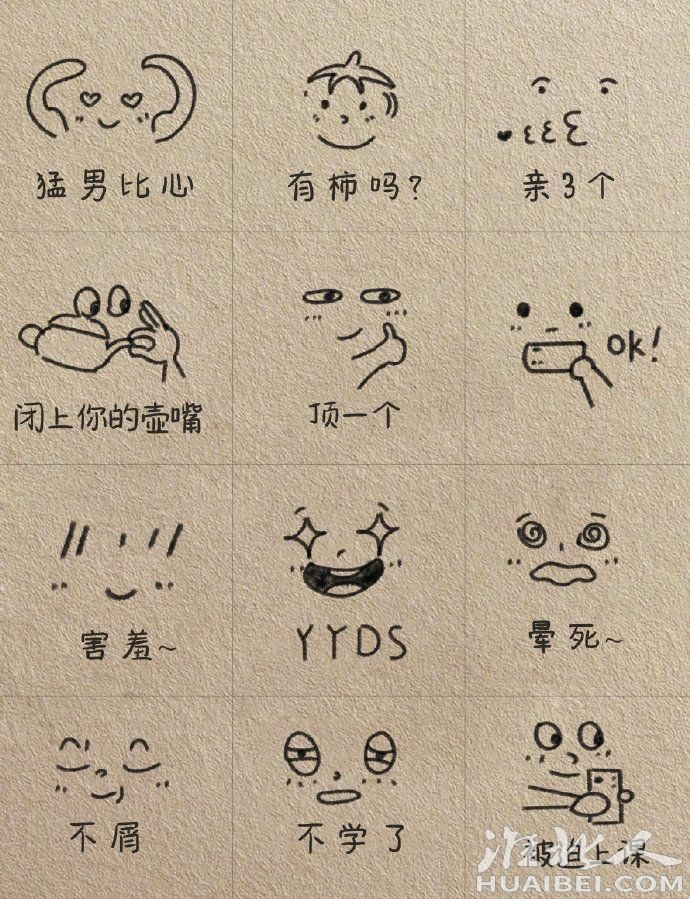 猛男比心
有柿吗?
亲3个
闭上你的壶嘴
顶一个
ok!
害羞~
YYDS
晕死~
不屑
不学了
被迫上课
淮北人
HUAIBEI.COM